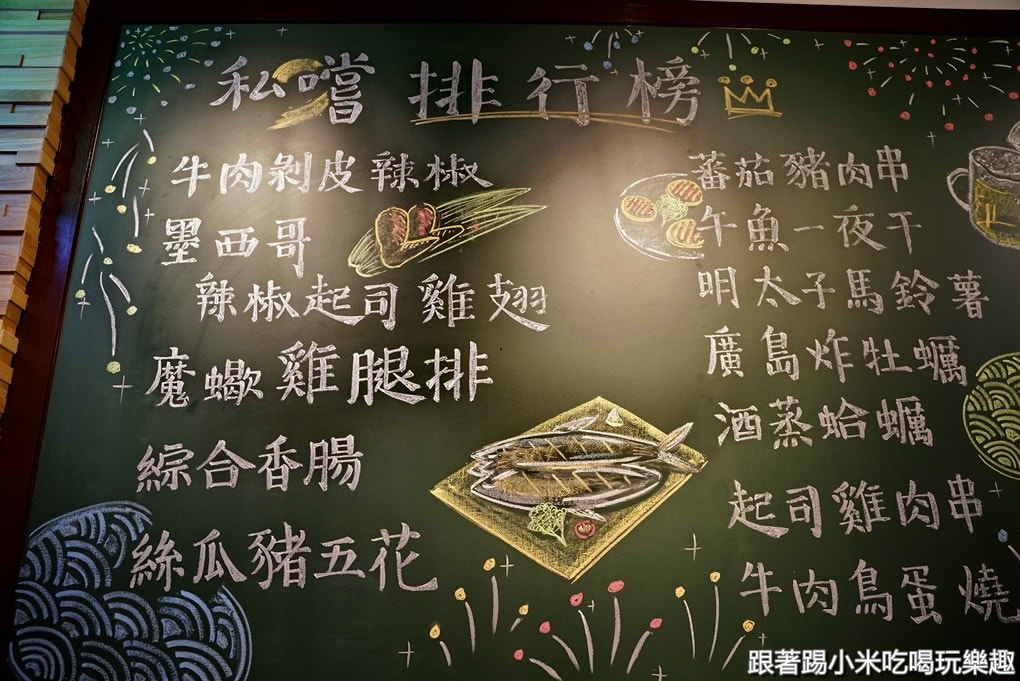 私嚐 排行榜
牛肉剝皮辣椒
墨西哥
辣椒起司雞翅
魔蠍雞腿排
綜合香腸
絲瓜豬五花
蕃茄豬肉串
午魚一夜干
明太子馬鈴薯
廣島炸牡蠣
酒蒸蛤蠣
起司雞肉串
牛肉鳥蛋燒
跟著踢小米吃喝玩樂趣